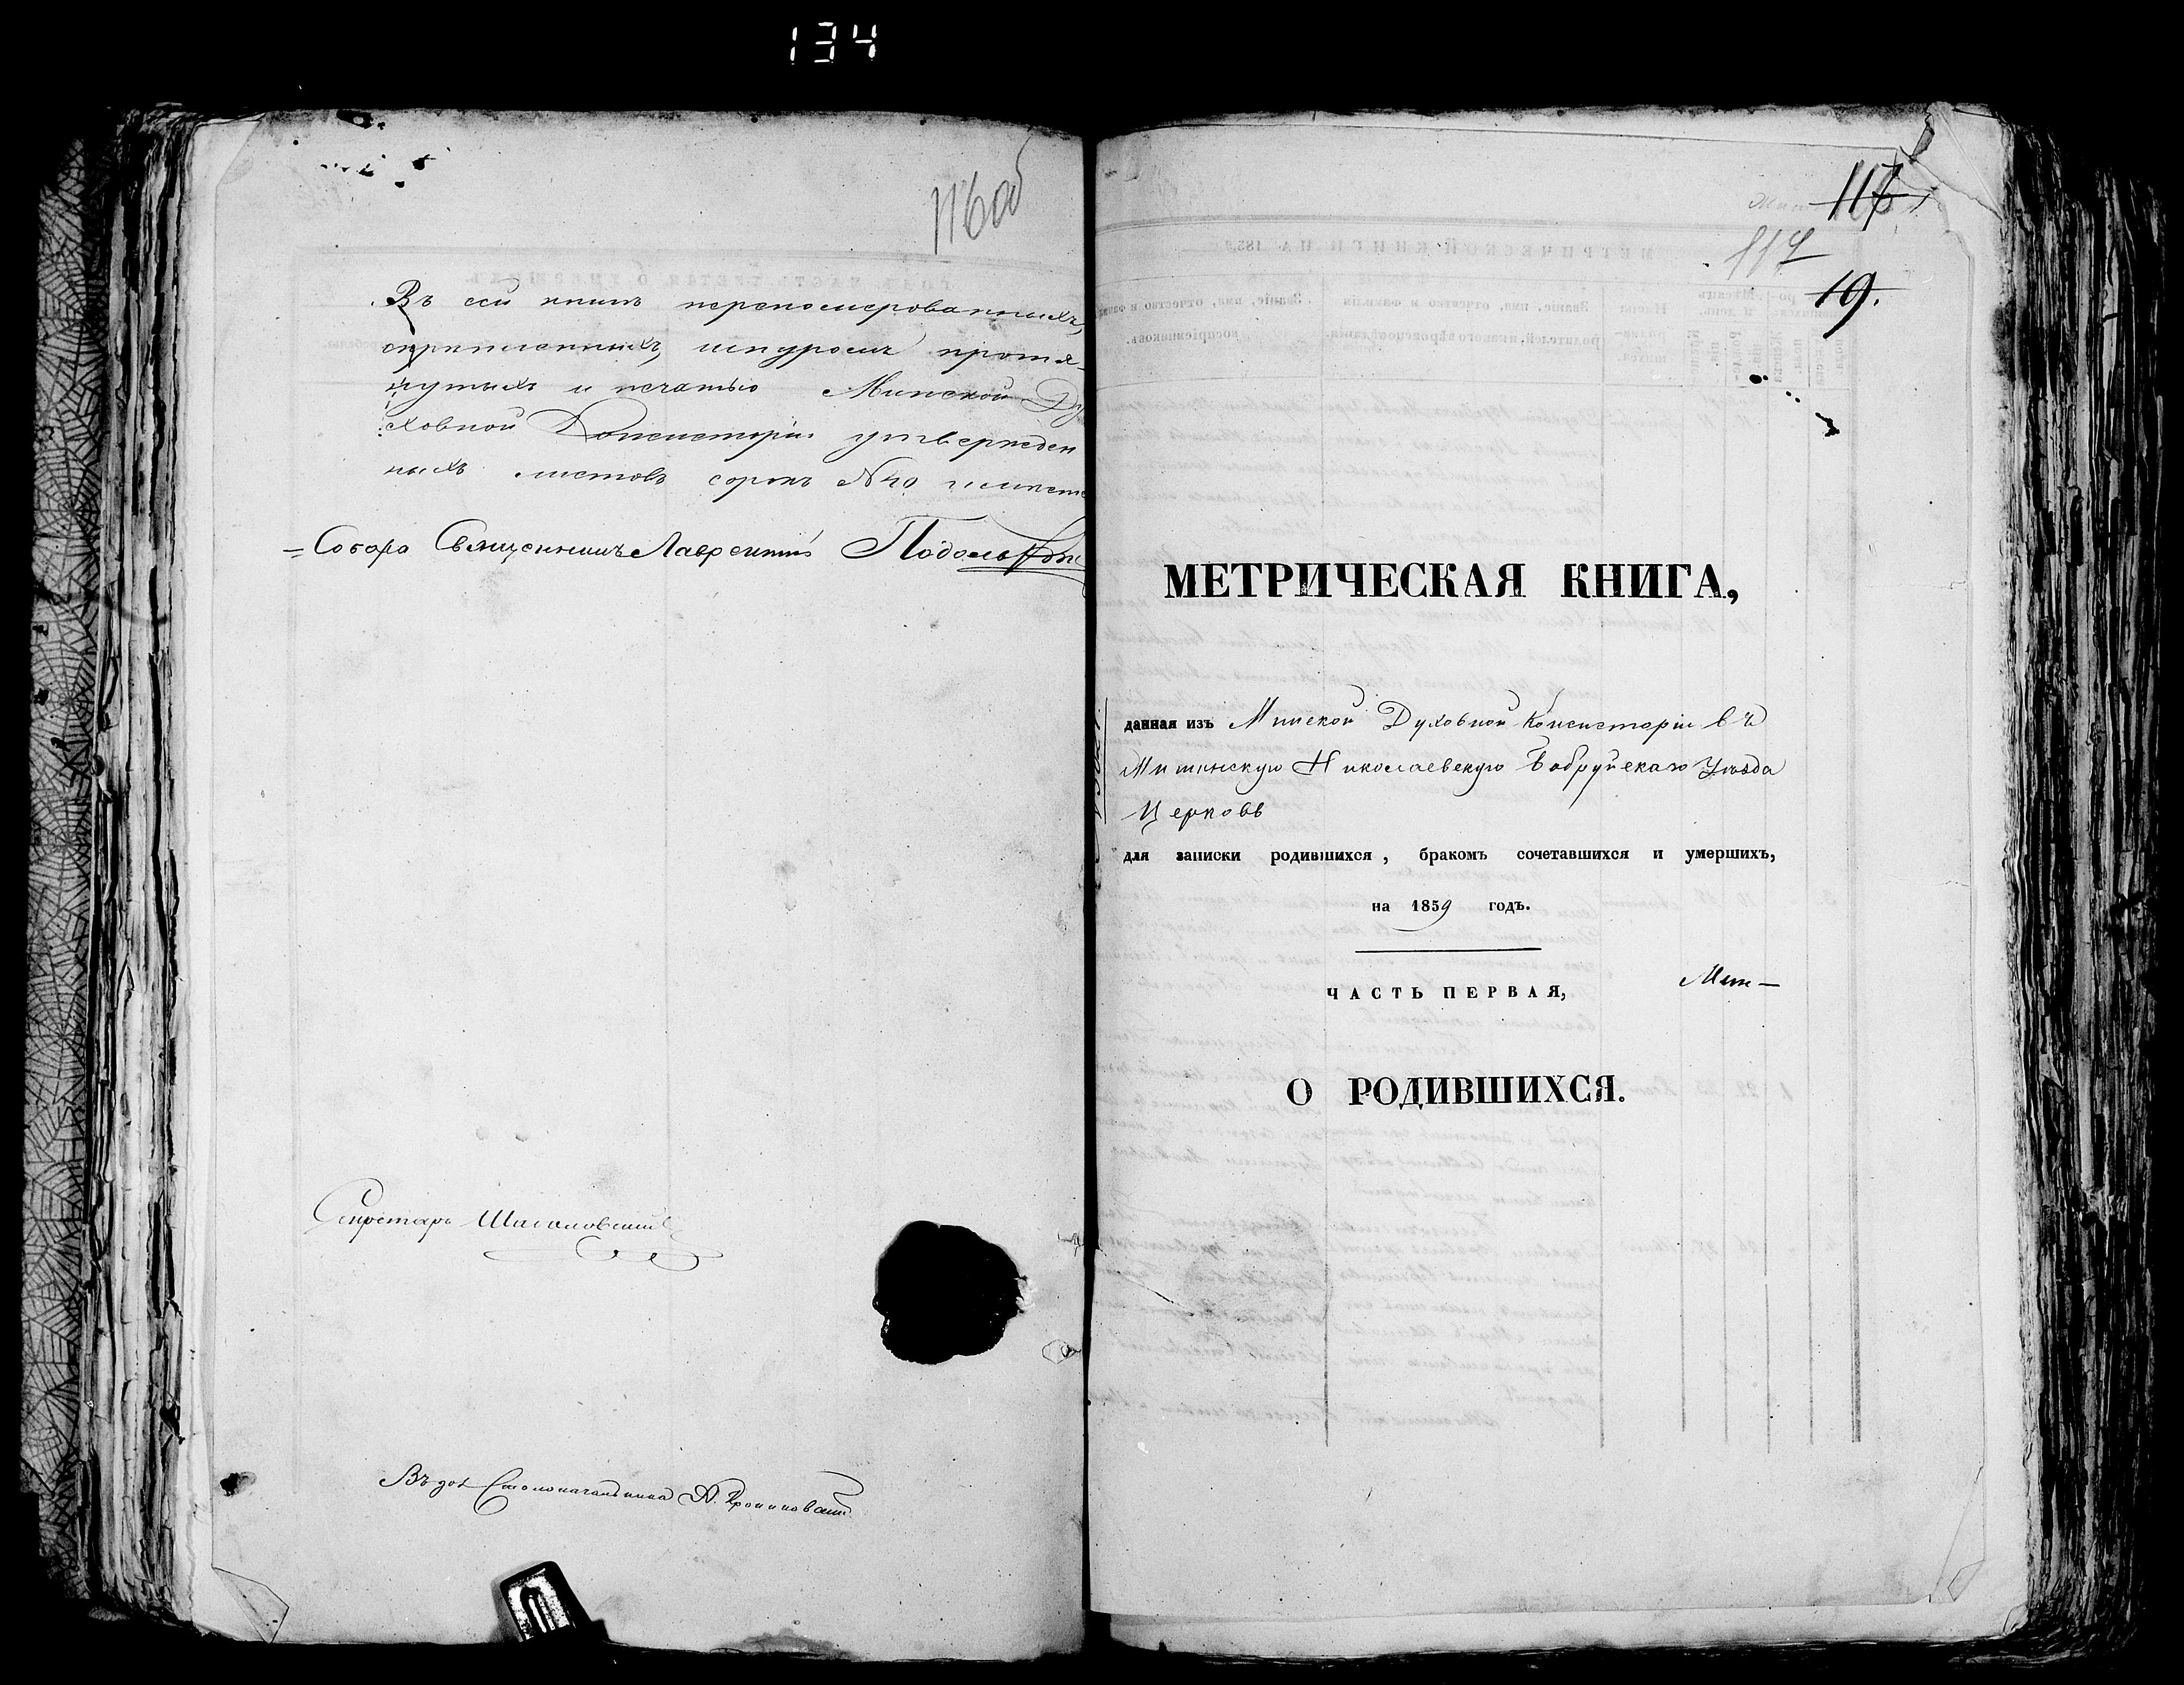 134
116об
Въ сей книгѣ перенумерованныхъ,
скрѣпленныхъ, шнуромъ протя-
нутыхъ и печатью Минской Ду
ховной Консисторіи утвержден
ныхъ листовъ сорокъ №40
Собора Священникъ Лаврентій
Секретарь
Въ дол Столоначальника А.
117
117
19.
МЕТРИЧЕСКАЯ КНИГА,
данная изъ Минской Духовной Консисторіи въ
Николаевскую Бобруйскаго Уѣзда
Церковь
для записки родившихся, бракомъ сочетавшихся и умершихъ,
на 1859 годъ.
ЧАСТЬ ПЕРВАЯ,
Мин-
О РОДИВШИХСЯ.